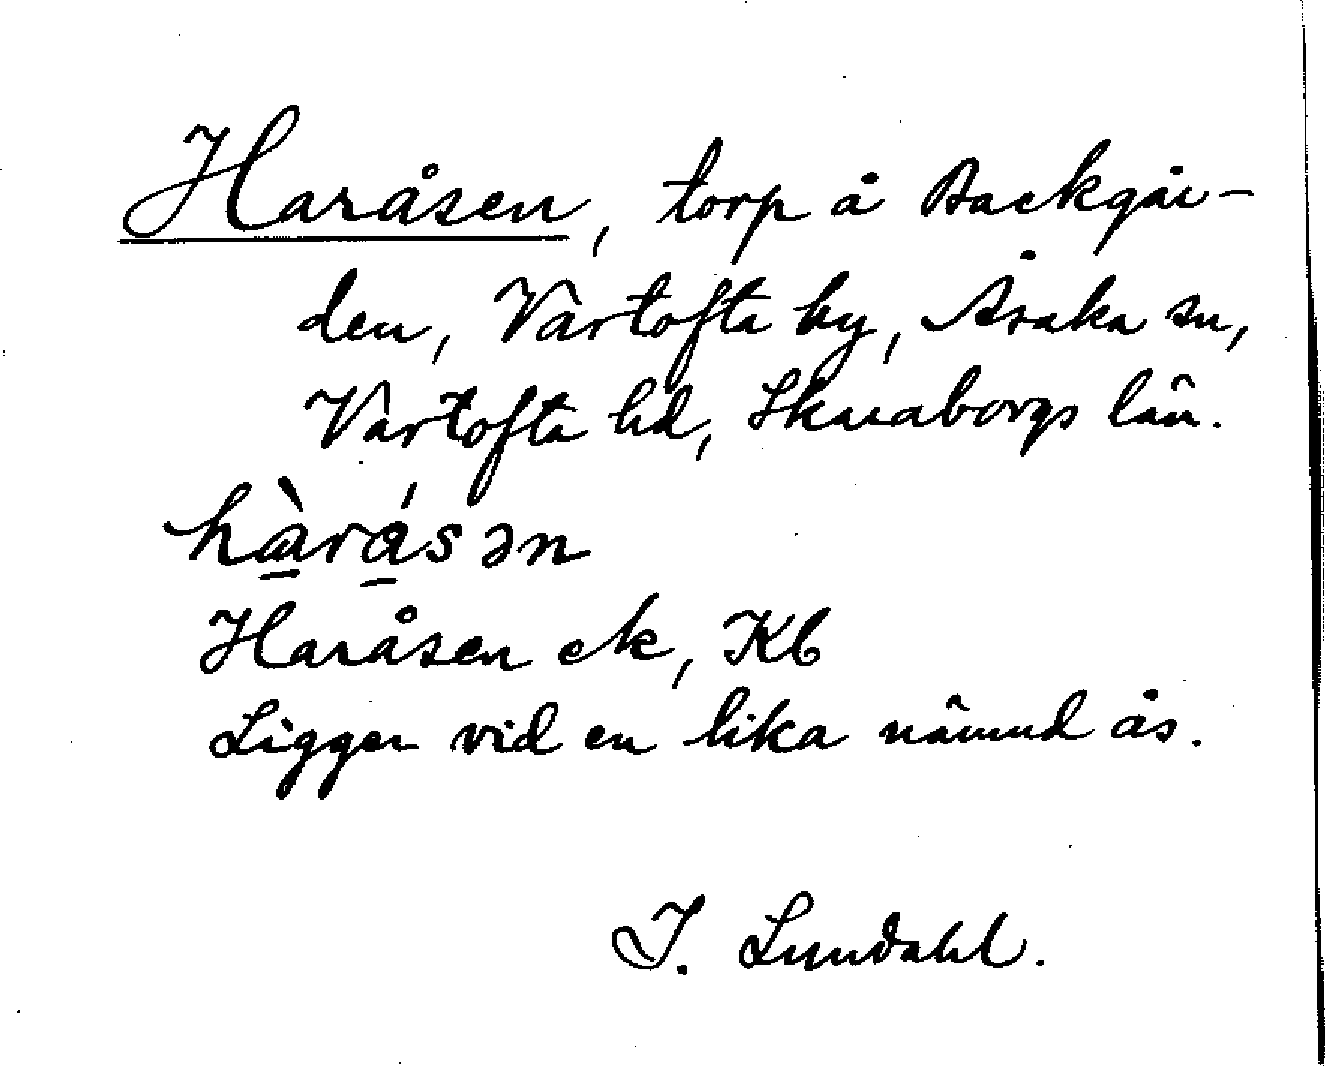 Haråsen, torp å Backgår-
den, Vartofta by, Åsaka sn,
Vartofta hd, Skaraborgs län.
hàrásən
Haråsen ek, Kb
Ligger vid en lika nämnd ås.
I. Lundahl.